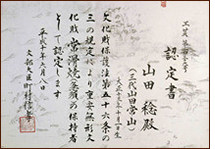 認定書
山田 稔殿
(三代山田常山)
文化財保護法第五十六条の
三の規定により重要無形文
化財常滑焼(急須)の保持者
として認定します
平成十年六月八日
文部大臣町村信孝